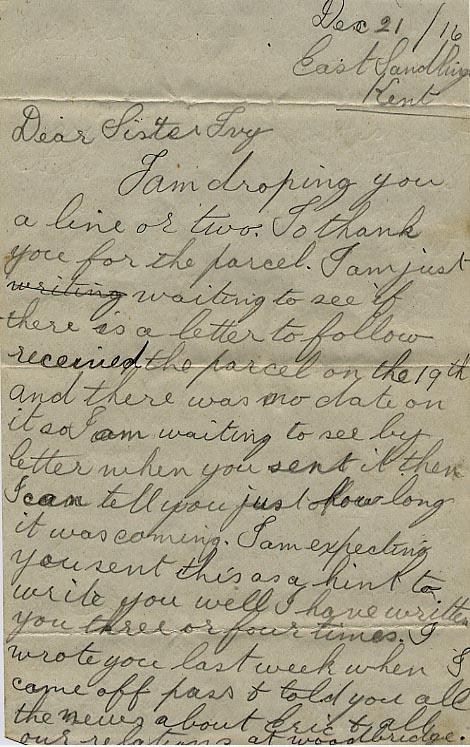 Dec 21/16
East Sandling
Kent
Dear Sister Ivy
I am droping you
a line or two. To thank
you for the parcel. I am just
writing waiting to see if
there is a letter to follow
received the parcel on the 19th
and there was no date on
it so I am waiting to see by
letter when you sent it then
I can tell you just how long
it was coming. I am expecting
you sent this as a hint to
write you well I have written
you three or four times. I
wrote you last week when I
came off pass & told you all
the news about Eric & all
our relations at Woodbridge.